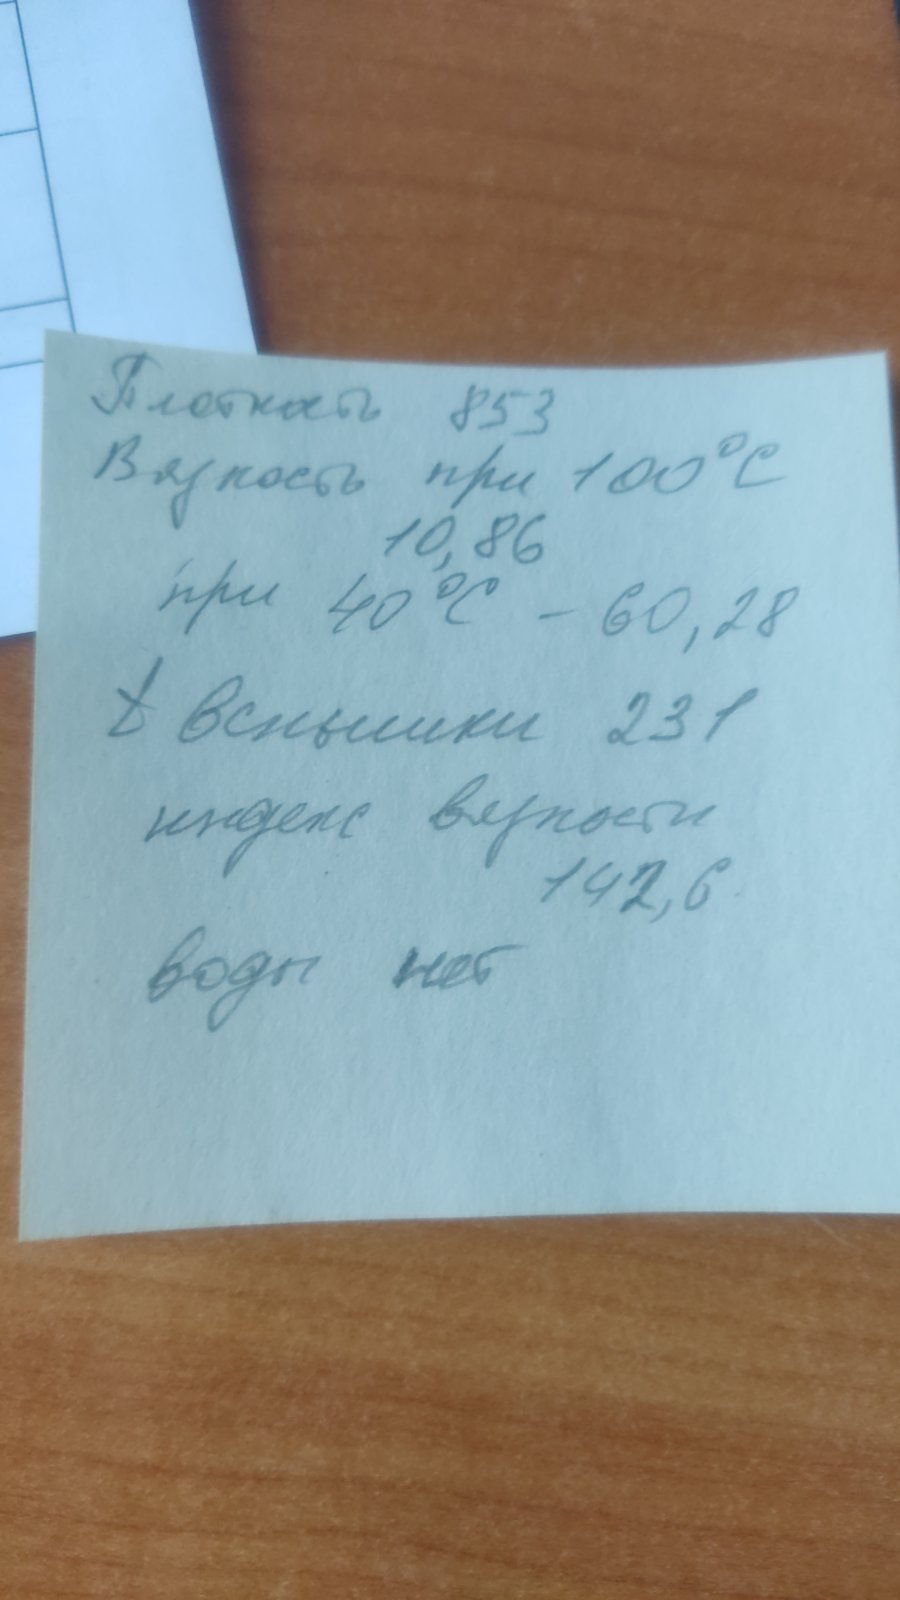 Плотность 853
Вязкость при 100°C
10,86
при 40°C - 60,28
t вспышки 231
индекс вязкости
142,6
воды нет